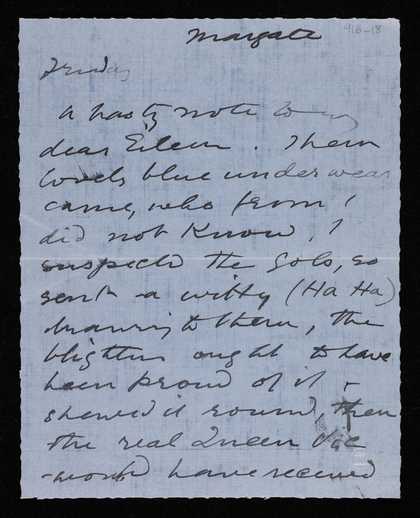 Margate
916-18
Friday
A hasty note to my
dear Eileen. Them
lovely blue underwear
came, who from I
did not know, I
suspected the Gols, so
sent a witty (Ha Ha)
drawing to them, the
blighters ought to have
been proud of it &
shewed it round, then
the real Queen Vic
would have received